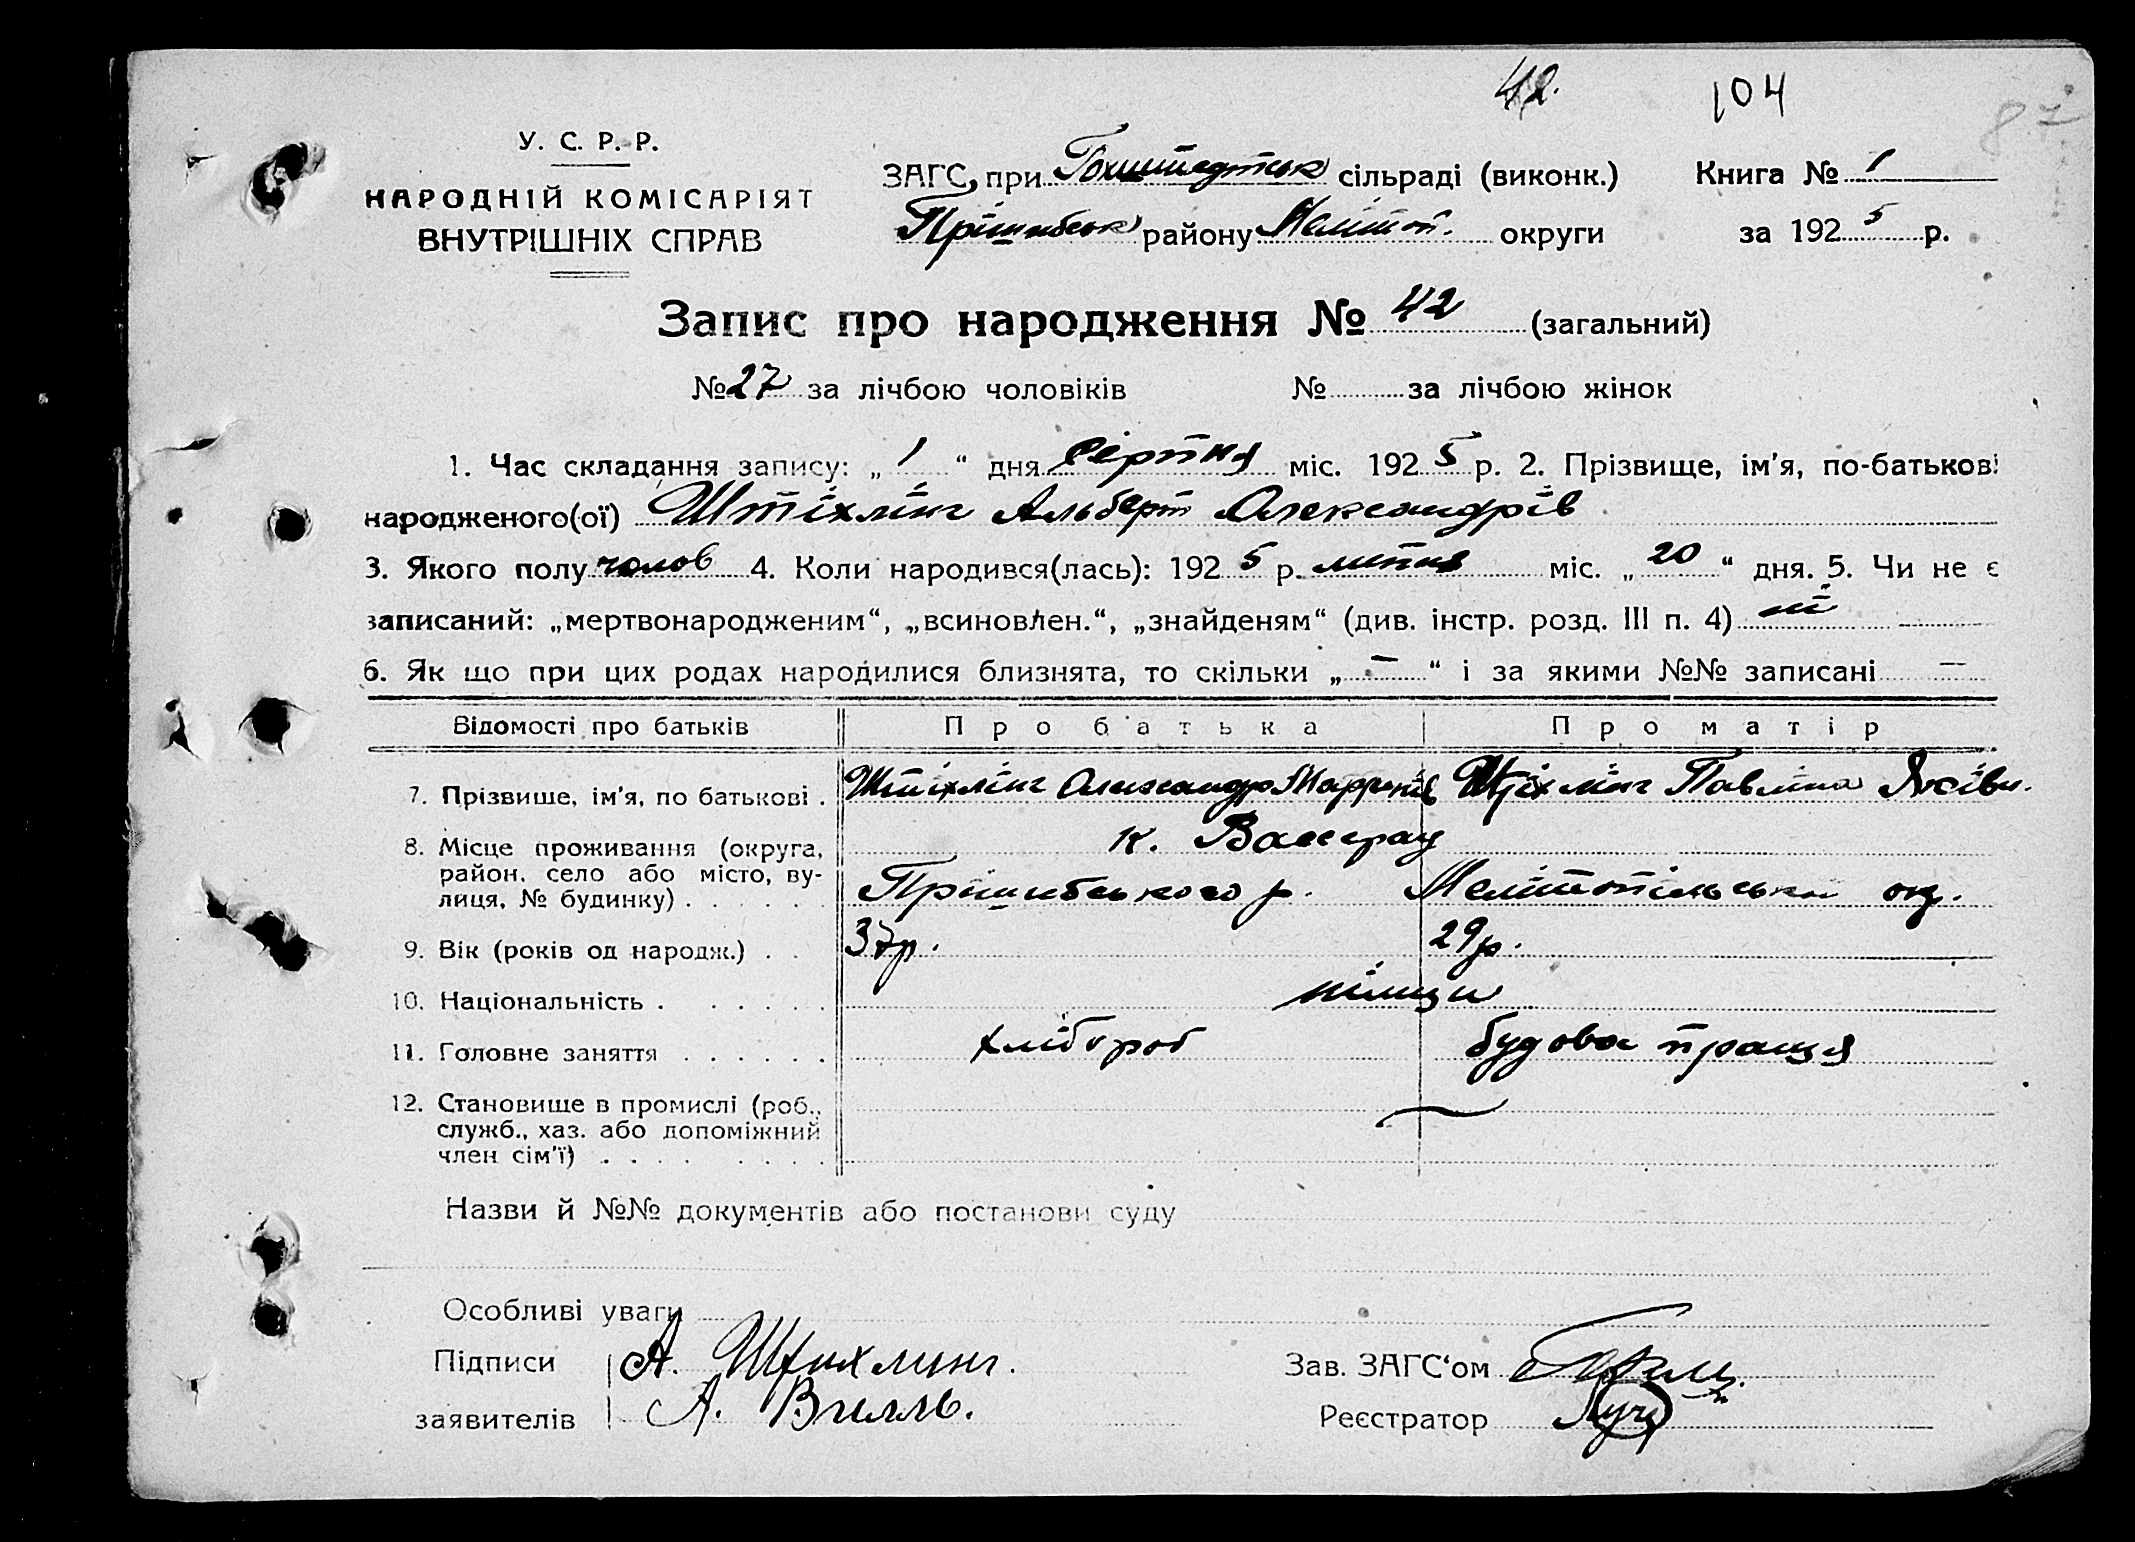 42. 104 87
У. С. Р. Р.
НАРОДНІЙ КОМІСАРІЯТ
ВНУТРІШНІХ СПРАВ
ЗАГС при Гохштедтськ сільраді (виконк.) Книга № 1
Прішибськ району Меліт. округи за 1925 р.
Запис про народження № 42 (загальний)
№ 27 за лічбою чоловіків № за лічбою жінок
1. Час складання запису: „ 1 “ дня серпня міс. 1925 р. 2. Прізвище, ім'я, по-батькові
народженого(ої) Штіхлінг Альберт Олександрів
3. Якого полу чолов 4. Коли народився(лась): 1925 р. липня міс. „ 20 “ дня. 5. Чи не є
записаний: „мертвонародженим“, „всиновлен.“, „знайденям“ (див. інстр. розд. III п. 4) ні
6. Як що при цих родах народилися близнята, то скільки „ — “ і за якими №№ записані —
Відомості про батьків Про батька Про матір
7. Прізвише, ім'я, по батькові . Штіхлінг Олександр Штіхлінг Павліна Яківн.
8. Місце проживання (округа, район, село або місто, вулиця, № будинку) . . . . . . к. Вассерау
Прішибського р. Мелітопільськой окр.
9. Вік (років од народж.) . . 37р. 29р.
10. Національність . . . . . . німци
11. Головне заняття . . . . . . хлібороб будова праця
12. Становише в промислі (роб., служб., хаз. або допоміжний член сім'ї) . . . . . . . . —
Назви й №№ документів або постанови суду
Особливі уваги
Підписи А. Штихлинг. Зав. ЗАГС‘ом
заявителів А. Вилль. Реєстратор